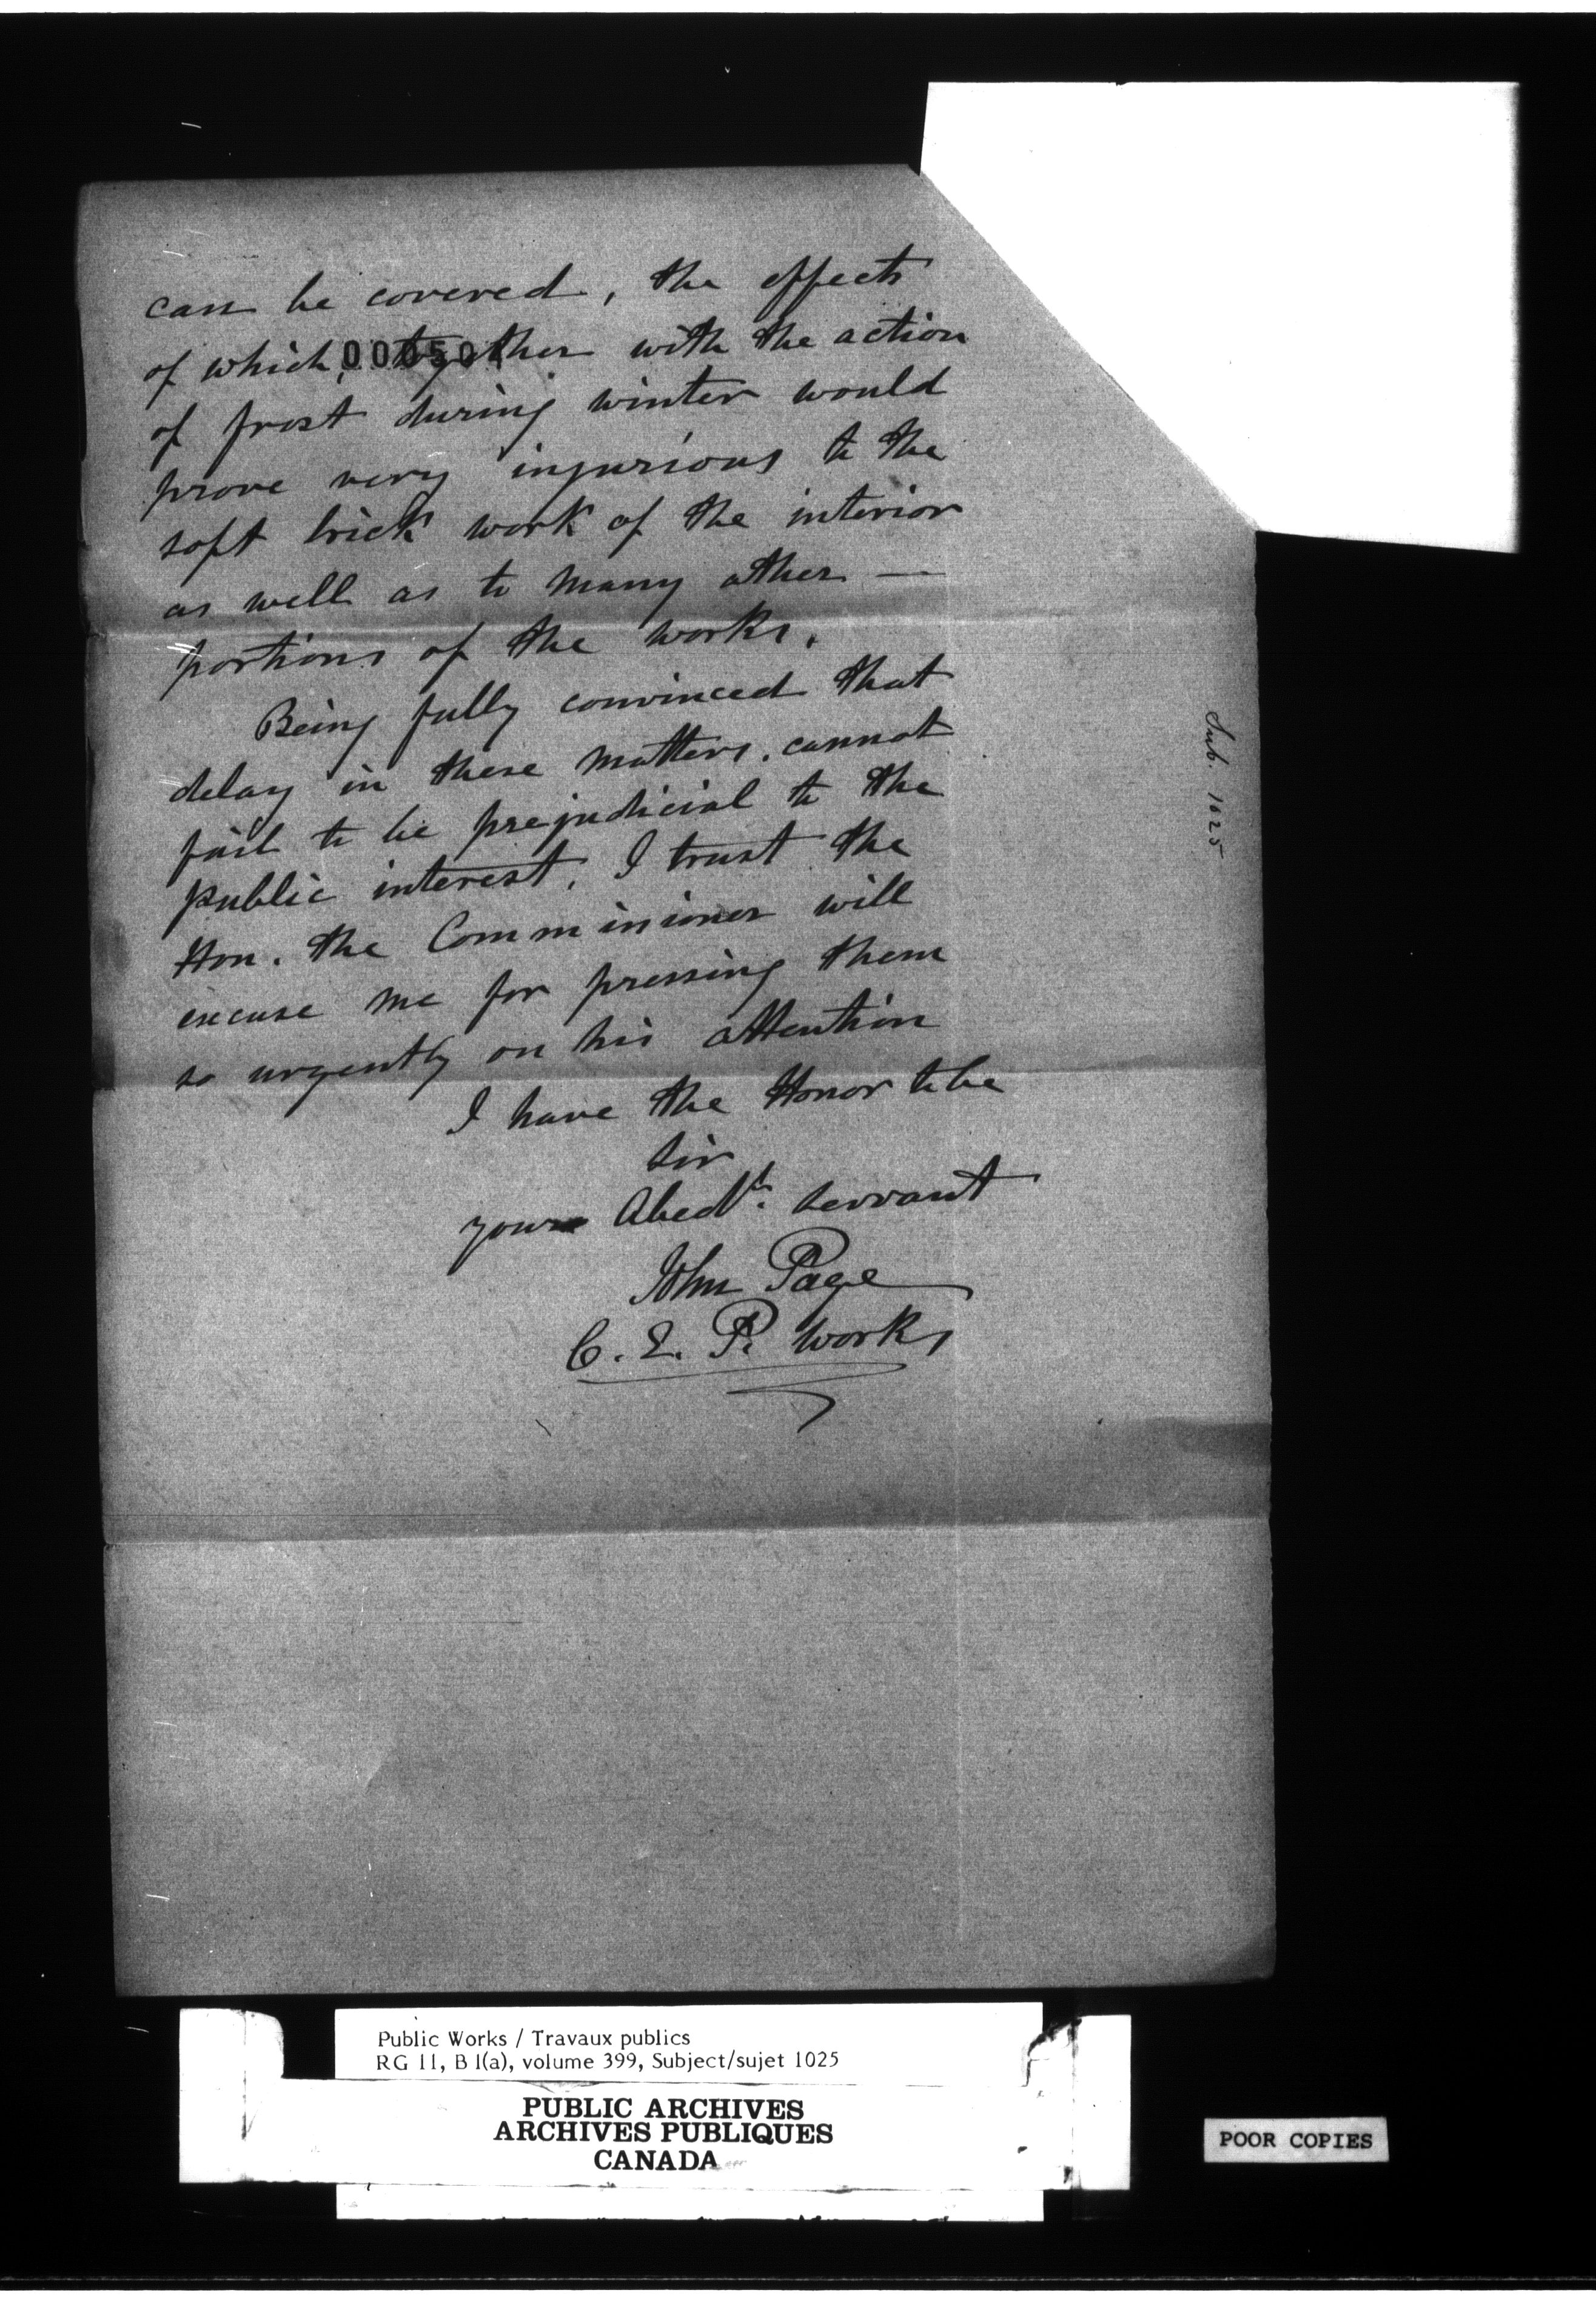 can be covered, the effects
of which, together with the action
of frost during winter would
prove very injurious to the
soft brick work of the interior
as well as to many other —
portions of the works.
Being fully convinced that
delay in these matters, cannot
fail to be prejudicial to the
public interest, I trust the
Hon. the Commissioner will
excuse me for pressing them
so urgently on his attention
I have the Honor to be
Sir
your Obedt. Servant
John Page
C. E. P. Works
Sub. 1025
Public Works / Travaux publics
RG 11, B 1(a), volume 399, Subject/sujet 1025
PUBLIC ARCHIVES
ARCHIVES PUBLIQUES
CANADA
POOR COPIES